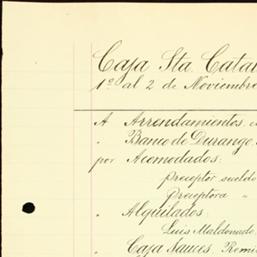 Caja Sta. Catar
1º al 2 de Noviembre
A Arrendamientos
" Banco de Durango
por Acomodados:
preceptor sueldo
preceptora "
" Alquilados:
Luis Maldonado
" Caja Sauces, Remi